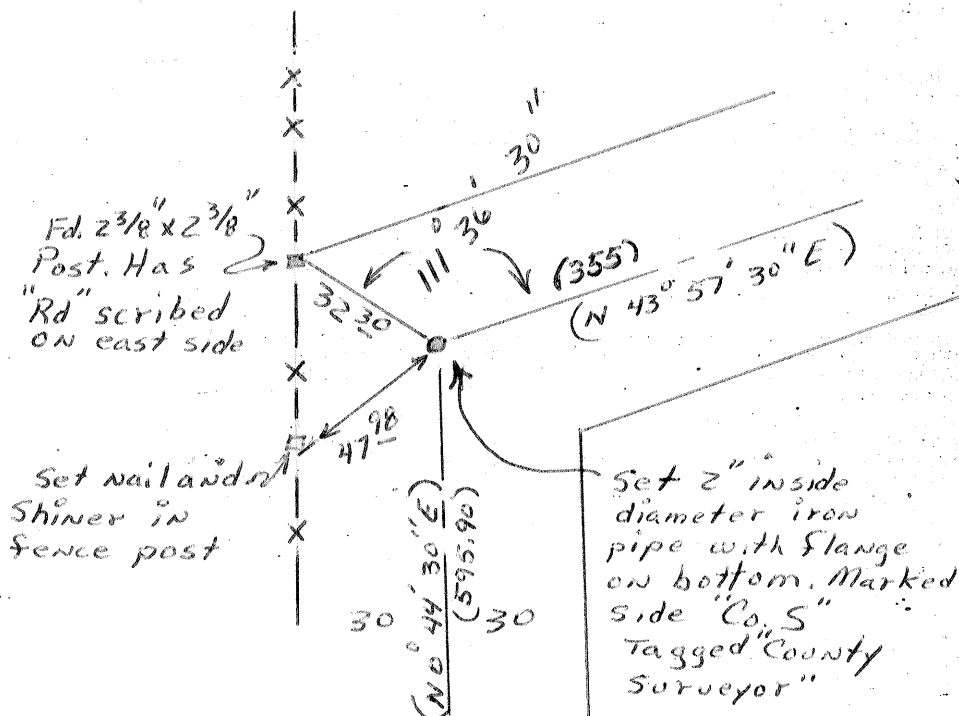 111° 36' 30"
Fd. 2 3/8" x 2 3/8"
Post. Has
"Rd" scribed
on east side
32 30
(355)
(N 43° 57' 30" E)
47 98
Set nail and
Shiner in
fence post
30
(N 0° 44' 30" E)
(595.90)
30
Set 2" inside
diameter iron
pipe with flange
on bottom. Marked
side "Co. S"
Tagged "County
Surveyor"